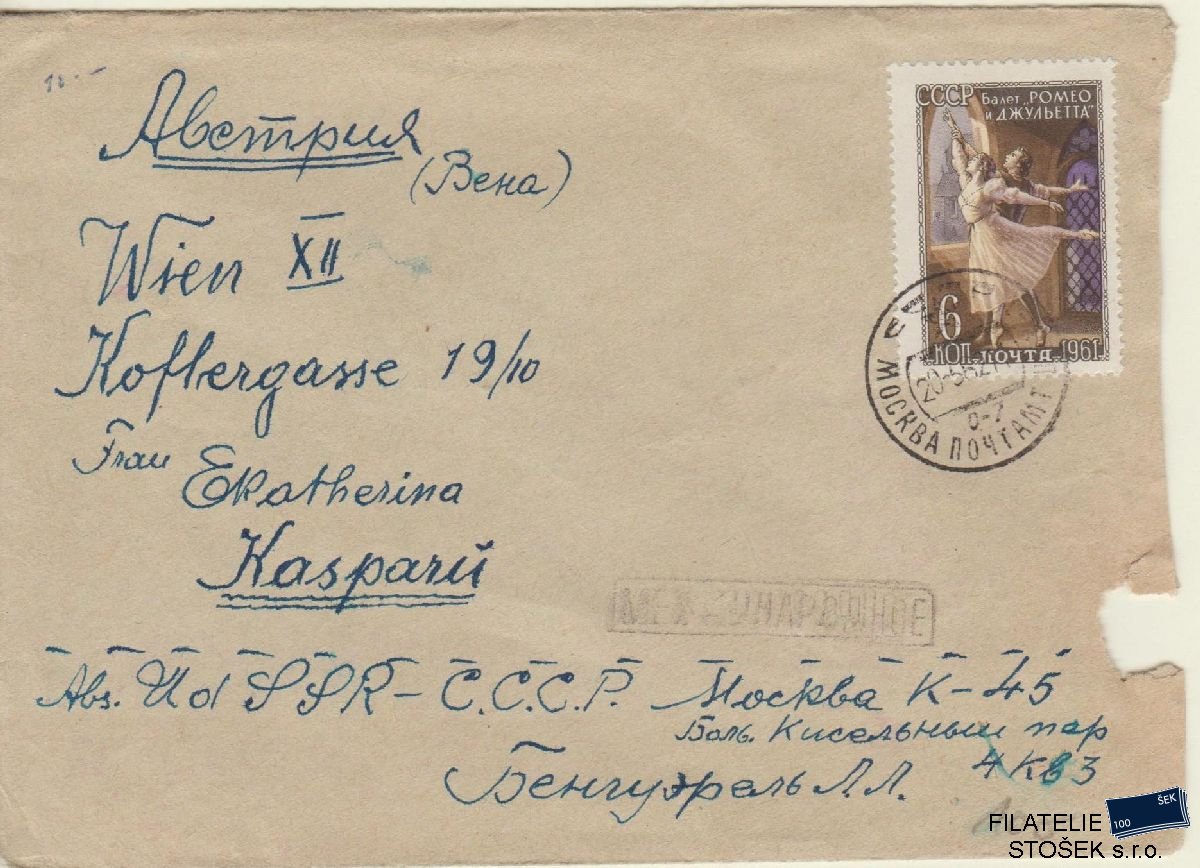 10.-
Австрия
(Вена)
Wien XII
Koflergasse 19/10
Frau Ekatherina
Kasparü
СССР Балет „РОМЕО
и ДЖУЛЬЕТТА"
6
КОП. ПОЧТА 1961
МОСКВА ПОЧТАМТ
Abs. UdSSR – С.С.С.Р. Москва К-45
Боль. Кисельный пер
4 кв 3
Бенгуэрель Л.Л.
FILATELIE
STOŠEK s.r.o.
100 ŠEK